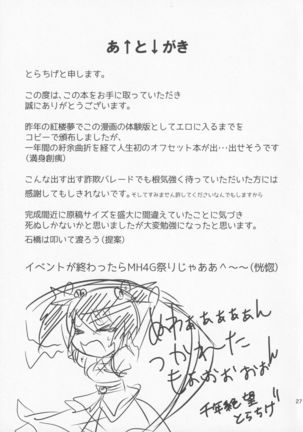 あ↑と↓がき
とらちげと申します。
この度は、この本をお手に取っていただき
誠にありがとうございます。
昨年の紅楼夢でこの漫画の体験版としてエロに入るまでを
コピーで頒布しましたが、
一年間の紆余曲折を経て人生初のオフセット本が出…出せそうです
(満身創痍)
こんな出す出す詐欺バレードでも根気強く待っていただいた方には
感謝してもしきれないです。そしてすみません許してくださいなんでもしますから
完成間近に原稿サイズを盛大に間違えていたことに気づき
死ぬしかないかと思いましたが大変勉強になったと思います。
石橋は叩いて渡ろう(提案)
イベントが終わったらMH4G祭りじゃああ^~~(恍惚)
ぬわあぁぁぁぁん
つかれた
もおおおおおん
千年絶望
とらちげ
27